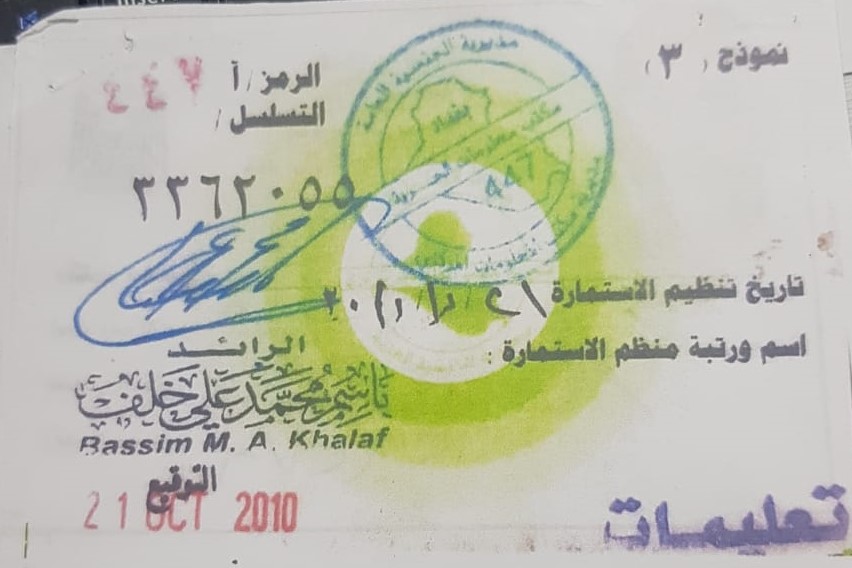 نموذج ( ٣ )
الرمز / أ ٤٤٧
التسلسل /
٣٣٦٢٠٥٥
مديرية الجنسية العامة
بغداد
447
تاريخ تنظيم الاستمارة
اسم ورتبة منظم الاستمارة :
الرائد
باسم محمد علي خلف
Bassim M. A. Khalaf
التوقيع
21 OCT 2010
تعليمات